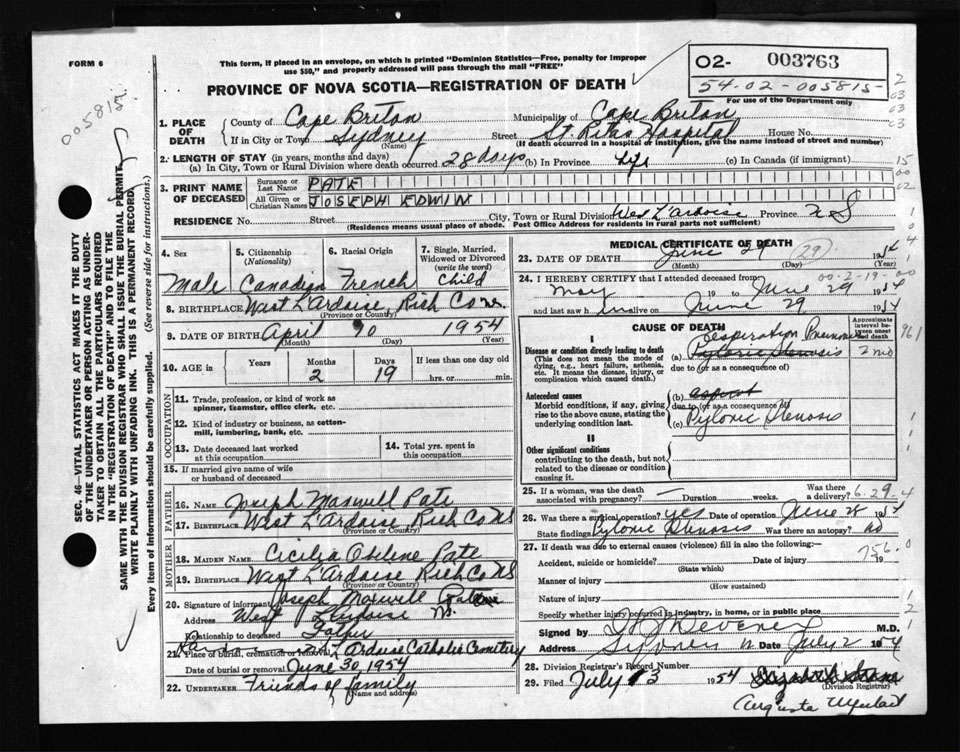 FORM 6
This form, if placed in an envelope, on which is printed "Dominion Statistics—Free, penalty for improper
use $50," and properly addressed will pass through the mail "FREE"
02- 003763
54-02-005815-
For use of the Department only
005815
PROVINCE OF NOVA SCOTIA—REGISTRATION OF DEATH
1. PLACE OF DEATH
County of Cape Briton Municipality of Cape Briton
If in City or Town Sydney (Name) Street St Ritas Hospital House No.
(If death occurred in a hospital or institution, give the name instead of street and number)
2. LENGTH OF STAY (in years, months and days)
(a) In City, Town or Rural Division where death occurred 28 days (b) In Province life (c) In Canada (if immigrant)
3. PRINT NAME OF DECEASED
Surname or Last Name PATE
All Given or Christian Names JOSEPH EDWIN
RESIDENCE No. Street City, Town or Rural Division West L'ardoise Province N S
(Residence means usual place of abode. Post Office Address for residents in rural parts not sufficient)
4. Sex Male
5. Citizenship (Nationality) Canadian
6. Racial Origin French
7. Single, Married, Widowed or Divorced (write the word) Child
8. BIRTHPLACE West L'Ardoise, Rich Co N.S.
(Province or Country)
9. DATE OF BIRTH April 10 1954
(Month) (Day) (Year)
10. AGE in Years Months 2 Days 19 If less than one day old hrs. or min.
OCCUPATION
11. Trade, profession, or kind of work as
spinner, teamster, office clerk, etc.
12. Kind of industry or business, as cotton-
mill, lumbering, bank, etc.
13. Date deceased last worked
at this occupation
14. Total yrs. spent in
this occupation
15. If married give name of wife
or husband of deceased
FATHER
16. Name Joseph Maxwell Pate
17. Birthplace West L'Ardoise Rich Co NS
(Province or Country)
MOTHER
18. Maiden Name Pate
19. Birthplace West L'Ardoise Rich Co NS
(Province or Country)
20. Signature of informant Joseph Maxwell
Address West L'Ardoise
Relationship to deceased Father
21. Place of burial, cremation or removal L'Ardoise Catholic Cemetery
Date of burial or removal June 30 1954
22. Undertaker Friends of family
(Name and address)
MEDICAL CERTIFICATE OF DEATH
23. DATE OF DEATH June 29 (29) 1954
(Month) (Day) (Year)
00-2-19-00
24. I HEREBY CERTIFY that I attended deceased from
May 19 to June 29 1954
and last saw him alive on June 29 1954
CAUSE OF DEATH
Approximate interval between onset and death
I
Disease or condition directly leading to death
(This does not mean the mode of dying, e.g., heart failure, asthenia, etc. It means the disease, injury, or complication which caused death.)
(a) Aspiration Pneumonia Pyloric Stenosis 2 mo
due to (or as a consequence of)
Antecedent causes
Morbid conditions, if any, giving rise to the above cause, stating the underlying condition last.
(b)
due to (or as a consequence of)
(c) Pyloric Stenosis
II
Other significant conditions
contributing to the death, but not related to the disease or condition causing it.
25. If a woman, was the death associated with pregnancy? — Duration weeks. Was there a delivery? 6-29-4
26. Was there a surgical operation? yes Date of operation June 28 1954
State findings Pyloric Stenosis Was there an autopsy? no
27. If death was due to external causes (violence) fill in also the following:—
756.0
Accident, suicide or homicide? Date of injury 19
(State which)
Manner of injury
(How sustained)
Nature of injury
Specify whether injury occurred in industry, in home, or in public place
Signed by M.D.
Address Sydney Date July 2 1954
28. Division Registrar's Record Number
29. Filed July 3 1954
(Division Registrar)
Augusta
SEC. 46—VITAL STATISTICS ACT MAKES IT THE DUTY
OF THE UNDERTAKER OR PERSON ACTING AS UNDER-
TAKER TO OBTAIN ALL THE PARTICULARS REQUIRED
IN THE "REGISTRATION OF DEATH" AND TO FILE THE
SAME WITH THE DIVISION REGISTRAR WHO SHALL ISSUE THE BURIAL PERMIT.
WRITE PLAINLY WITH UNFADING INK. THIS IS A PERMANENT RECORD.
Every item of information should be carefully supplied. (See reverse side for instructions.)